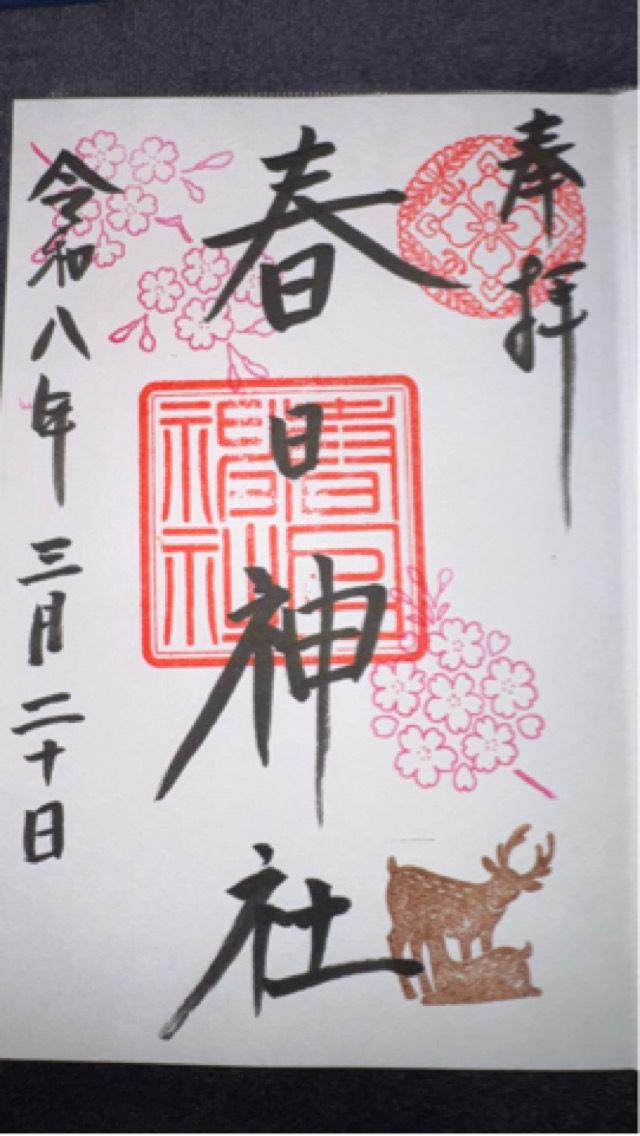 奉拝
春日神社
春日神社
令和八年三月二十日